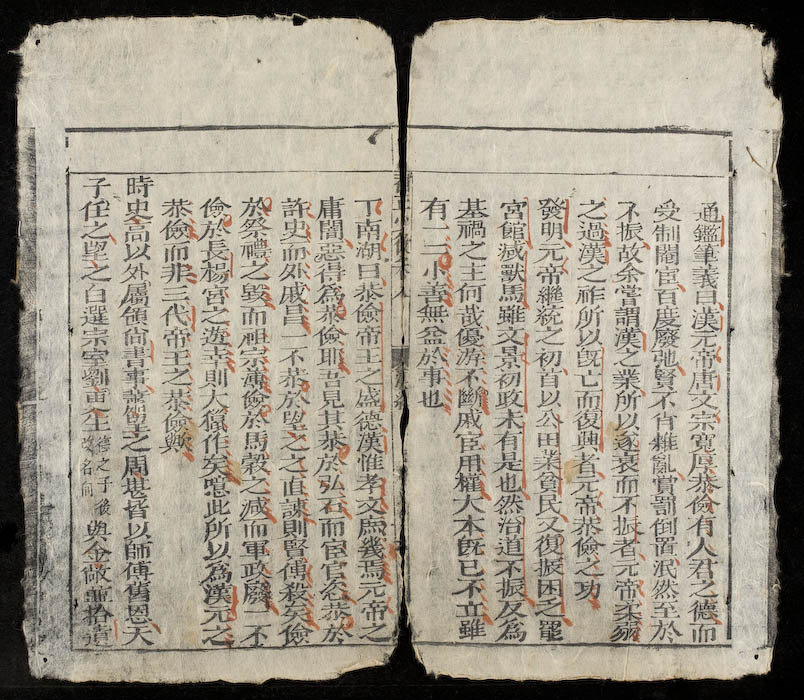 通鑑筆義曰漢元帝唐文宗寬厚恭儉有人君之德而
受制閹宦百度廢弛賢不肖雜亂賞罰倒置泯然至於
不振故余嘗謂漢之業所以遂衰而不振者元帝柔弱
之過漢之祚所以旣亡而復興者元帝恭儉之功
發明元帝繼統之初首以公田業貧民又復振困乏罷
宮館減獸馬雖文景初政未有是也然治道不振反為
基禍之主何哉優游不斷戚宦用權大本旣已不立雖
有一二小善無益於事也
丁南湖曰恭儉帝王之盛德漢惟孝文庶幾焉元帝之
庸闇惡得為恭儉耶吾見其恭於弘石而宦官名恭於
許史而外戚昌一不恭於望之之直諫則賢傅殺矣儉
於祭禮之毀而祖宗薄儉於馬穀之减而軍政廢一不
儉於長楊宮之遊幸則大獵作矣噫此所以為漢元之
恭儉而非三代帝王之恭儉歟
時史高以外屬領尙書事蕭望之周堪皆以師傅舊恩天
子任之望之白選宗室劉更生德之子後改名向與金敞並拾遺